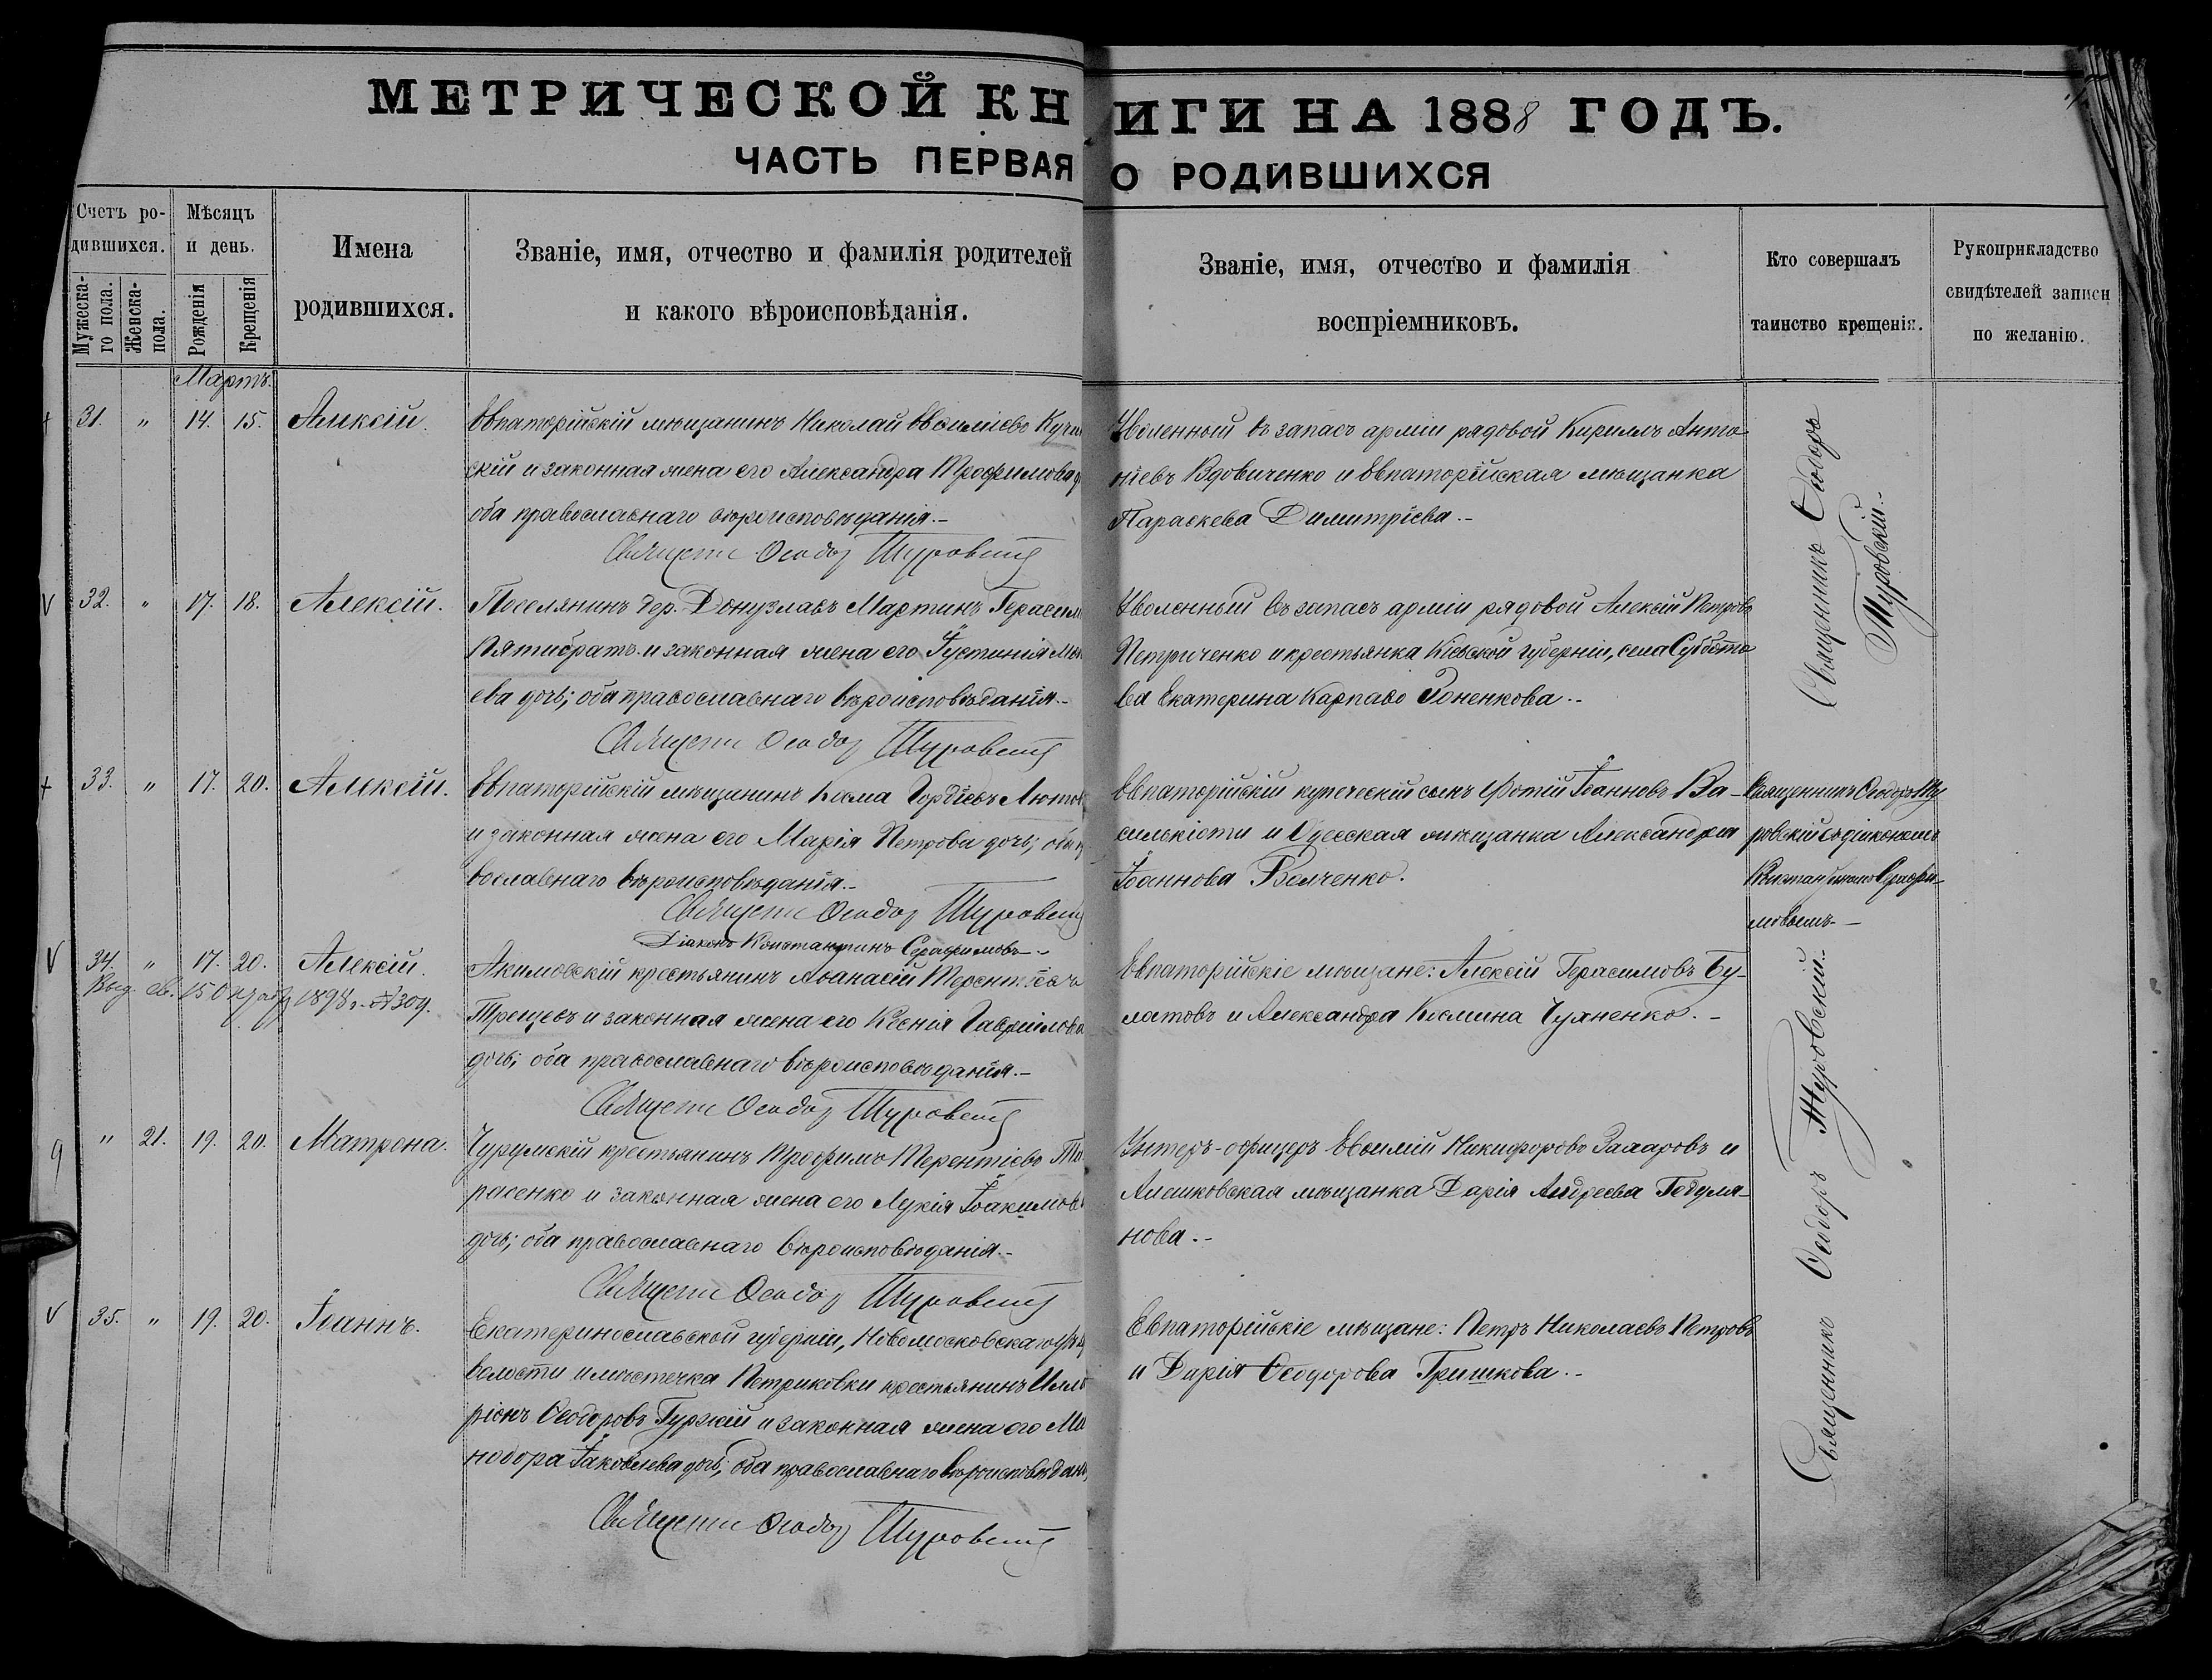 МЕТРИЧЕСКОЙ КНИГИ НА 1888 ГОДЪ.
ЧАСТЬ ПЕРВАЯ О РОДИВШИХСЯ
Счетъ ро-
дившихся.
Мужеска-
го пола.
Женска-
пола.
Мѣсяцъ
и день.
Рожденія
Крещенія
Имена
родившихся.
Званіе, имя, отчество и фамилія родителей
и какого вѣроисповѣданія.
Званіе, имя, отчество и фамилія
воспріемниковъ.
Кто совершалъ
таинство крещенія.
Рукоприкладство
свидѣтелей записи
по желанію.
Мартъ.
31. " 14. 15. Алексій.
Евпаторійскій мѣщанинъ Николай Евѳиміевъ
скій и законная жена его Александра Трофимова
оба православнаго вѣроисповѣданія.-
Священ Ѳеодор Туровскій
Уволенный въ запасъ арміи рядовой Кириллъ Анто-
ніевъ Вдовиченко и Евпаторійская мѣщанка
Параскева Димитріева.-
Священникъ Ѳеодоръ
Туровскій.-
32. " 17. 18. Алексій.
Поселянинъ дер. Донузлавъ Мартинъ Герасим
Пятибратъ и законная жена его Іустинія
ева дочь; оба православнаго вѣроисповѣданія.-
Священ Ѳеодор Туровскій
Уволенный въ запасъ арміи рядовой Алексій Петровъ
Петриченко и крестьянка Кіевской губерніи, села Суббото
ва Екатерина Карпово
33. " 17. 20. Алексій.
Евпаторійскій мѣщанинъ Косма Гордіевъ Лютов
и законная жена его Марія Петрова дочь; оба п
вославнаго вѣроисповѣданія.-
Священ Ѳеодор Туровскій
Діаконъ Константинъ Серафимовъ.-
Евпаторійскій купеческій сынъ Фотій Іоанновъ Ва-
силькіоти и Одесская мѣщанка Александра
Іоаннова Велченко.
Священникъ Ѳеодоръ Ту
ровскій съ діакономъ
Константиномъ Серафи-
мовымъ.-
34. " 17. 20. Алексій.
Выд. св. 15 1898 г. № 309.
Акимовскій крестьянинъ Аѳанасій Терентіевъ
Трещевъ и законная жена его Ксенія Гавріилова
дочь; оба православнаго вѣроисповѣданія.-
Священ Ѳеодор Туровскій
Евпаторійскіе мѣщане: Алексій Герасимовъ Бу-
латовъ и Александра Космина Чуяненко.-
" 21. 19. 20. Матрона.
Чурумскій крестьянинъ Трофимъ Терентіевъ Та
расенко и законная жена его Лукія Іоакимова
дочь; оба православнаго вѣроисповѣданія.-
Священ Ѳеодор Туровскій
Унтеръ-офицеръ Евѳимій Никифорово Захаровъ и
Алешковская мѣщанка Дарія Андреева Гедуля-
нова.-
Священникъ Ѳеодоръ Туровскій.-
35. " 19. 20. Іоаннъ.
Екатеринославской губерніи, Новомосковскаго
волости и мѣстечка Петриковки крестьянинъ Илла
ріонъ Ѳеодоровъ Гурскій и законная жена его Ми
нодора Іаковлева дочь; оба православнаго вѣроисповѣдан
Священ Ѳеодор Туровскій
Евпаторійскіе мѣщане: Петръ Николаевъ Петровъ
и Дарія Ѳеодорова Гришкова.-